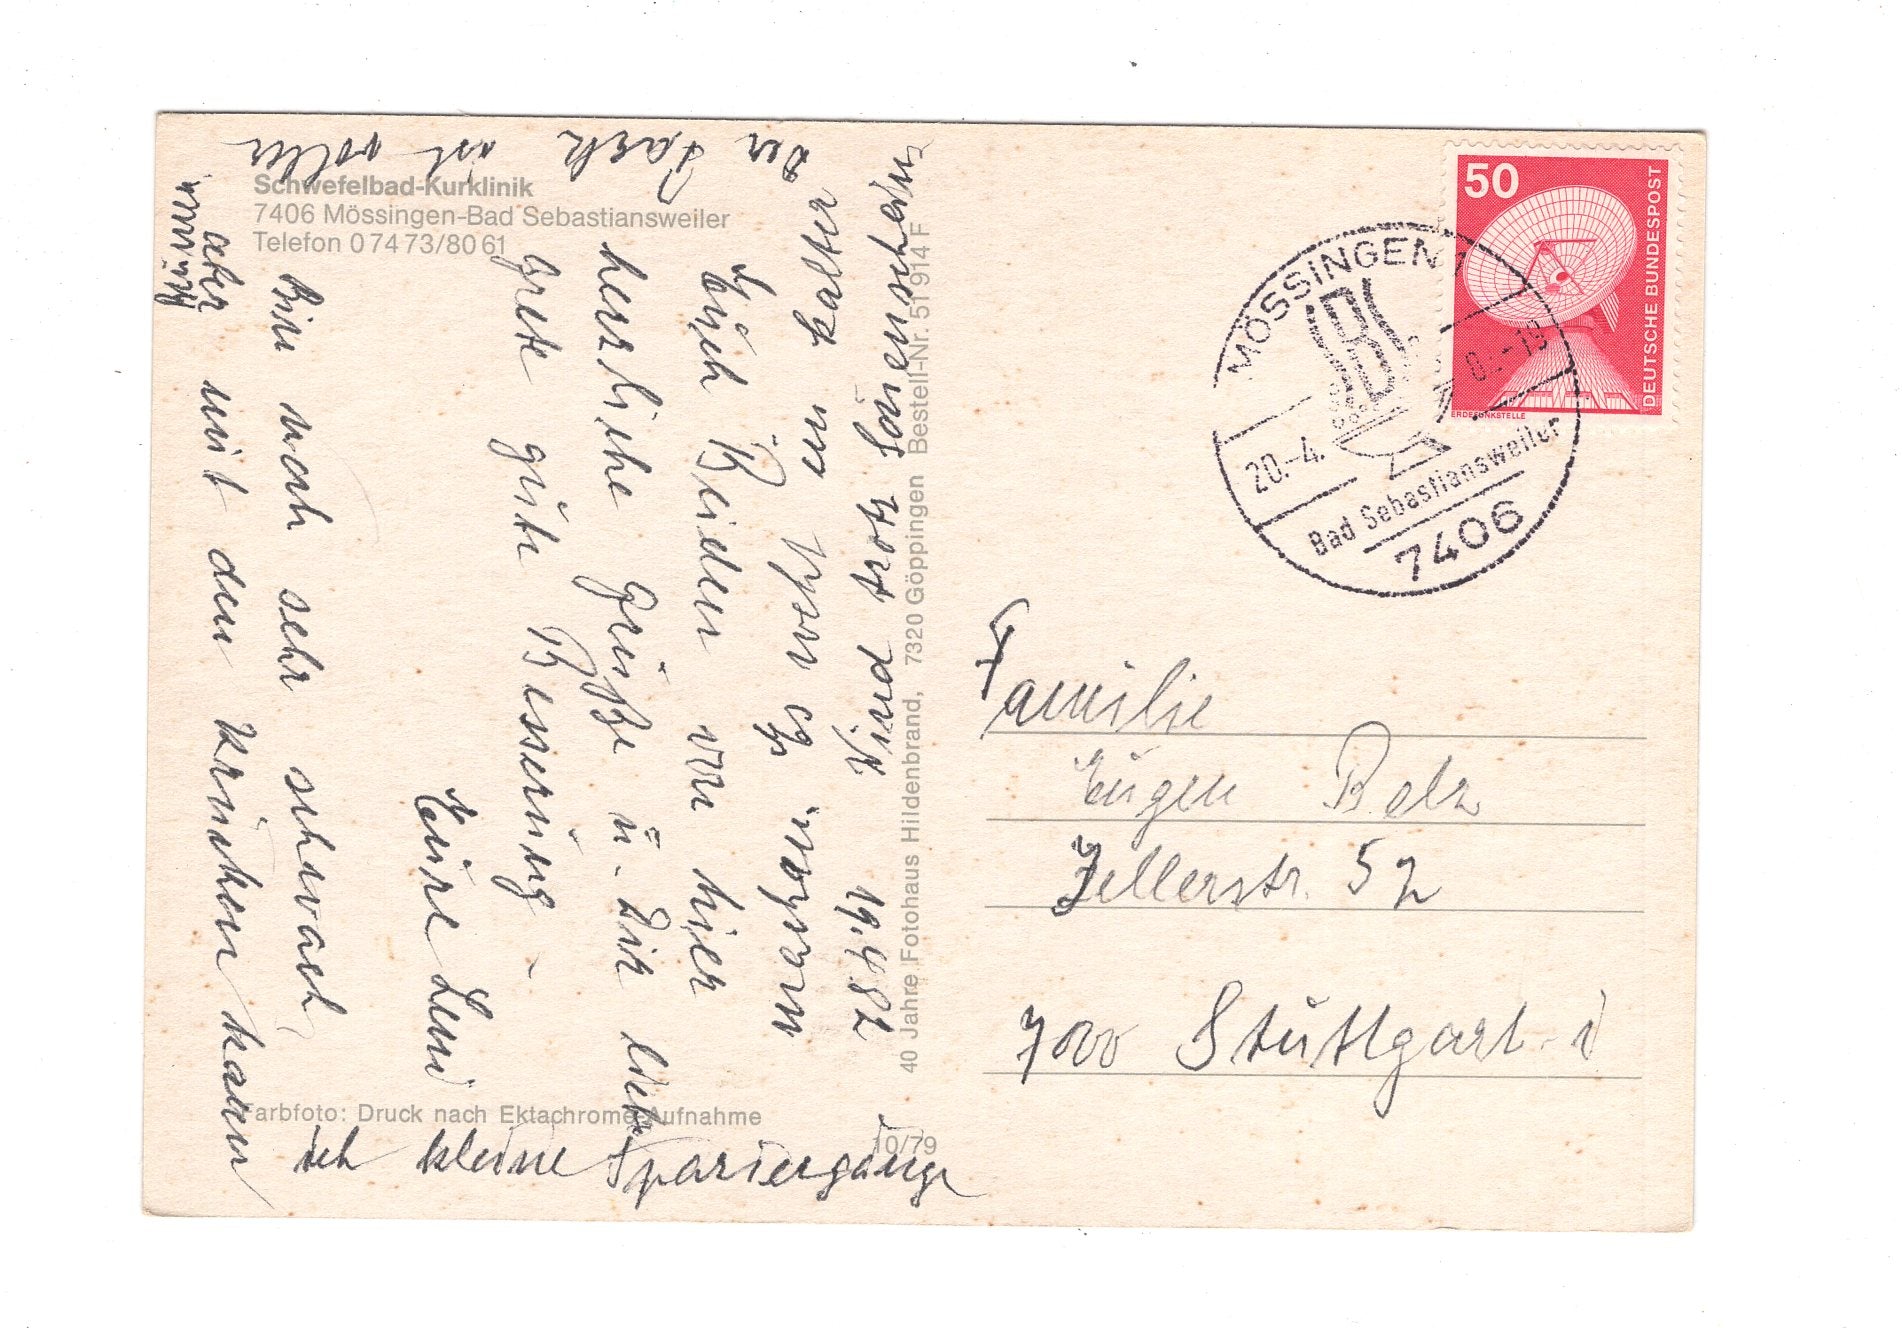 Schwefelbad-Kurklinik
7406 Mössingen-Bad Sebastiansweiler
Telefon 07473/8061
19.4.82
Euch Beiden von hier
herzliche Grüße u. Dir liebe
Grete gute Besserung -
Eure Leni
Bin noch sehr schwach,
aber mit den Krücken kann
ich kleine Spaziergänge
machen. Es weht ein kalter
Wind trotz Sonnenschein
der Park ist voller
Farbfoto: Druck nach Ektachrome-Aufnahme
10/79
40 Jahre Fotohaus Hildenbrand, 7320 Göppingen Bestell-Nr. 51 914 F
50
DEUTSCHE BUNDESPOST
ERDEFUNKSTELLE
MÖSSINGEN 1
20.-4.
-19
Bad Sebastiansweiler
7406
Familie
Eugen Belz
Zellerstr. 52
7000 Stuttgart-1